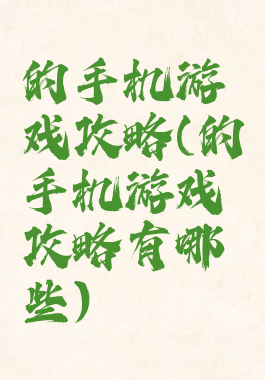 的手机游
戏攻略(的
手机游戏
攻略有哪
些)